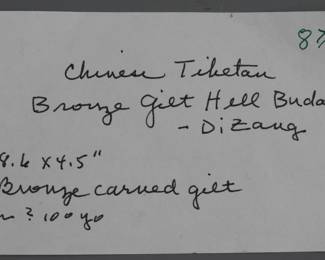 87
Chinese Tibetan
Bronze Gilt Hell Buda
- DiZang
8.6 x 4.5"
Bronze carved gilt
? 100 yo